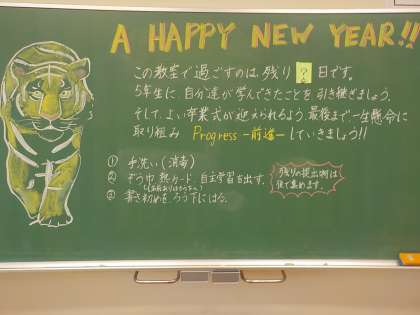 A HAPPY NEW YEAR!!
この教室で過ごすのは、残り ? 日です。
5年生に、自分達が学んできたことを引き継ぎましょう。
そして、よい卒業式が迎えられるよう、最後まで一生懸命に
取り組み Progress -前進- していきましょう!!
① 手洗い(消毒)
② ぞう巾、熱カード、自主学習を出す。
③ 書き初めを、ろう下にはる。
残りの提出物は
後で集めます。